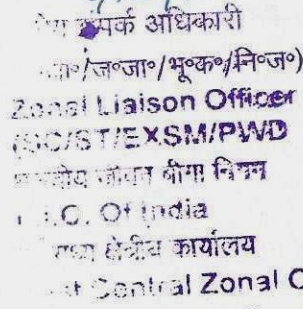 सम्पर्क अधिकारी
जा०/ज०जा०/भू०क०/नि०ज०)
Zonal Liaison Officer
(SC/ST/EXSM/PWD
जीवन बीमा निगम
I.C. Of India
मध्य क्षेत्रीय कार्यालय
Central Zonal O